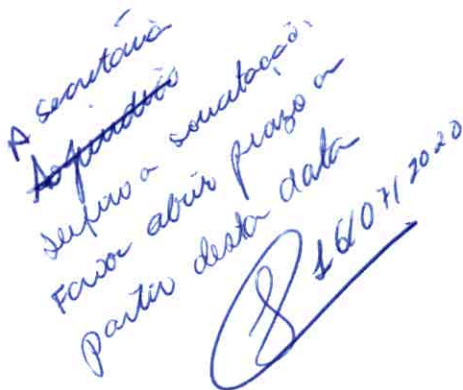 A secretária
Ao jurídico
Defiro a solicitação.
Favor abrir prazo a
partir desta data
16/07/2020